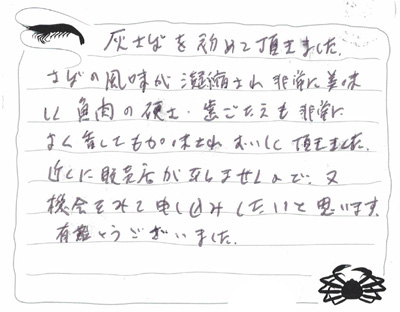 灰さばを初めて頂きました。
さばの風味が凝縮され非常に美味
しく魚肉の硬さ・歯ごたえも非常に
よく
しても加味されおいしく頂きました。
近くに販売店が在しませんので、又
機会をみて申し込みしたいと思います。
有難とうございました。